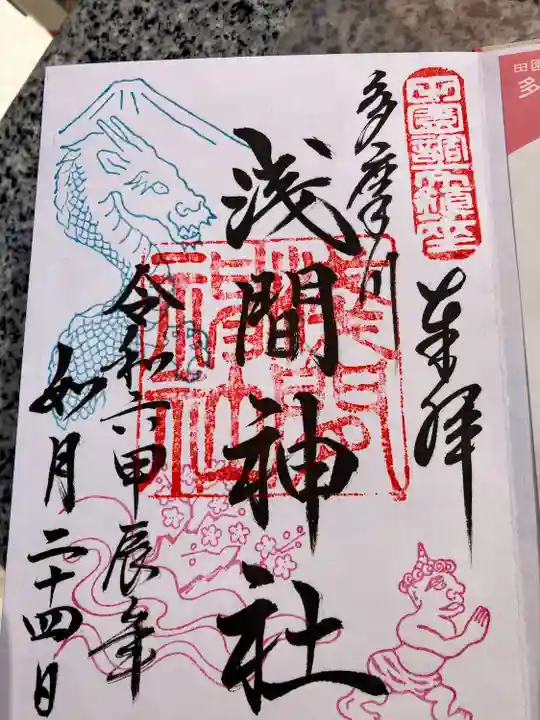 田園調布鎮座
奉拝
多摩川
浅間神社
浅間神社
令和六甲辰年
如月二十四日
田園
多